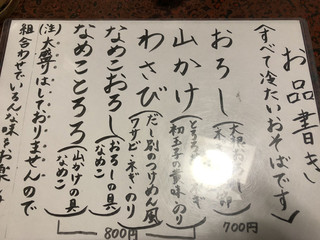 お品書き
(すべて冷たいおそばです)
おろし(大根お 節) 700円
山かけ(とろろ
初玉子の黄味・のり)
わさび(だし別のつけめん風
ワサビ・ネギ・のり)
なめこおろし(おろしの具
なめこ)
なめことろろ(山かけの具
なめこ)
800円
(注)大盛りはしておりませんので
組合わせでいろんな味をお楽